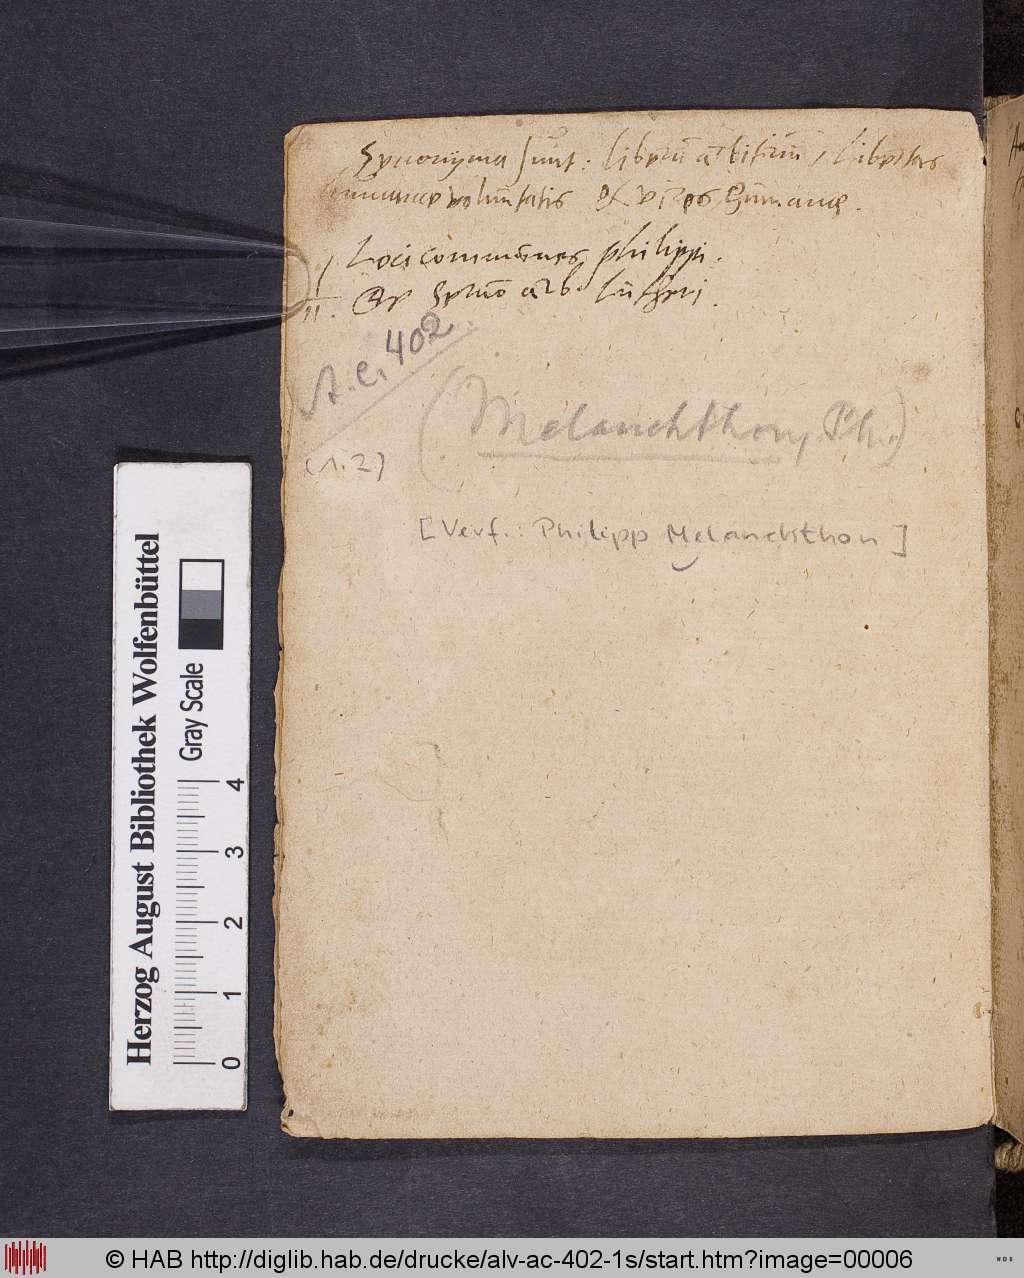 Synonyma sunt: liberũ arbitriũ, libertas
humanae voluntatis et vires humanae.
I Loci communes philippi.
II. De servo arb: lutheri.
A.C. 402.
(1.2)
(Melanchthon, Ph.)
[Verf.: Philipp Melanchthon]
Herzog August Bibliothek Wolfenbüttel
Gray Scale
0 1 2 3 4
© HAB http://diglib.hab.de/drucke/alv-ac-402-1s/start.htm?image=00006